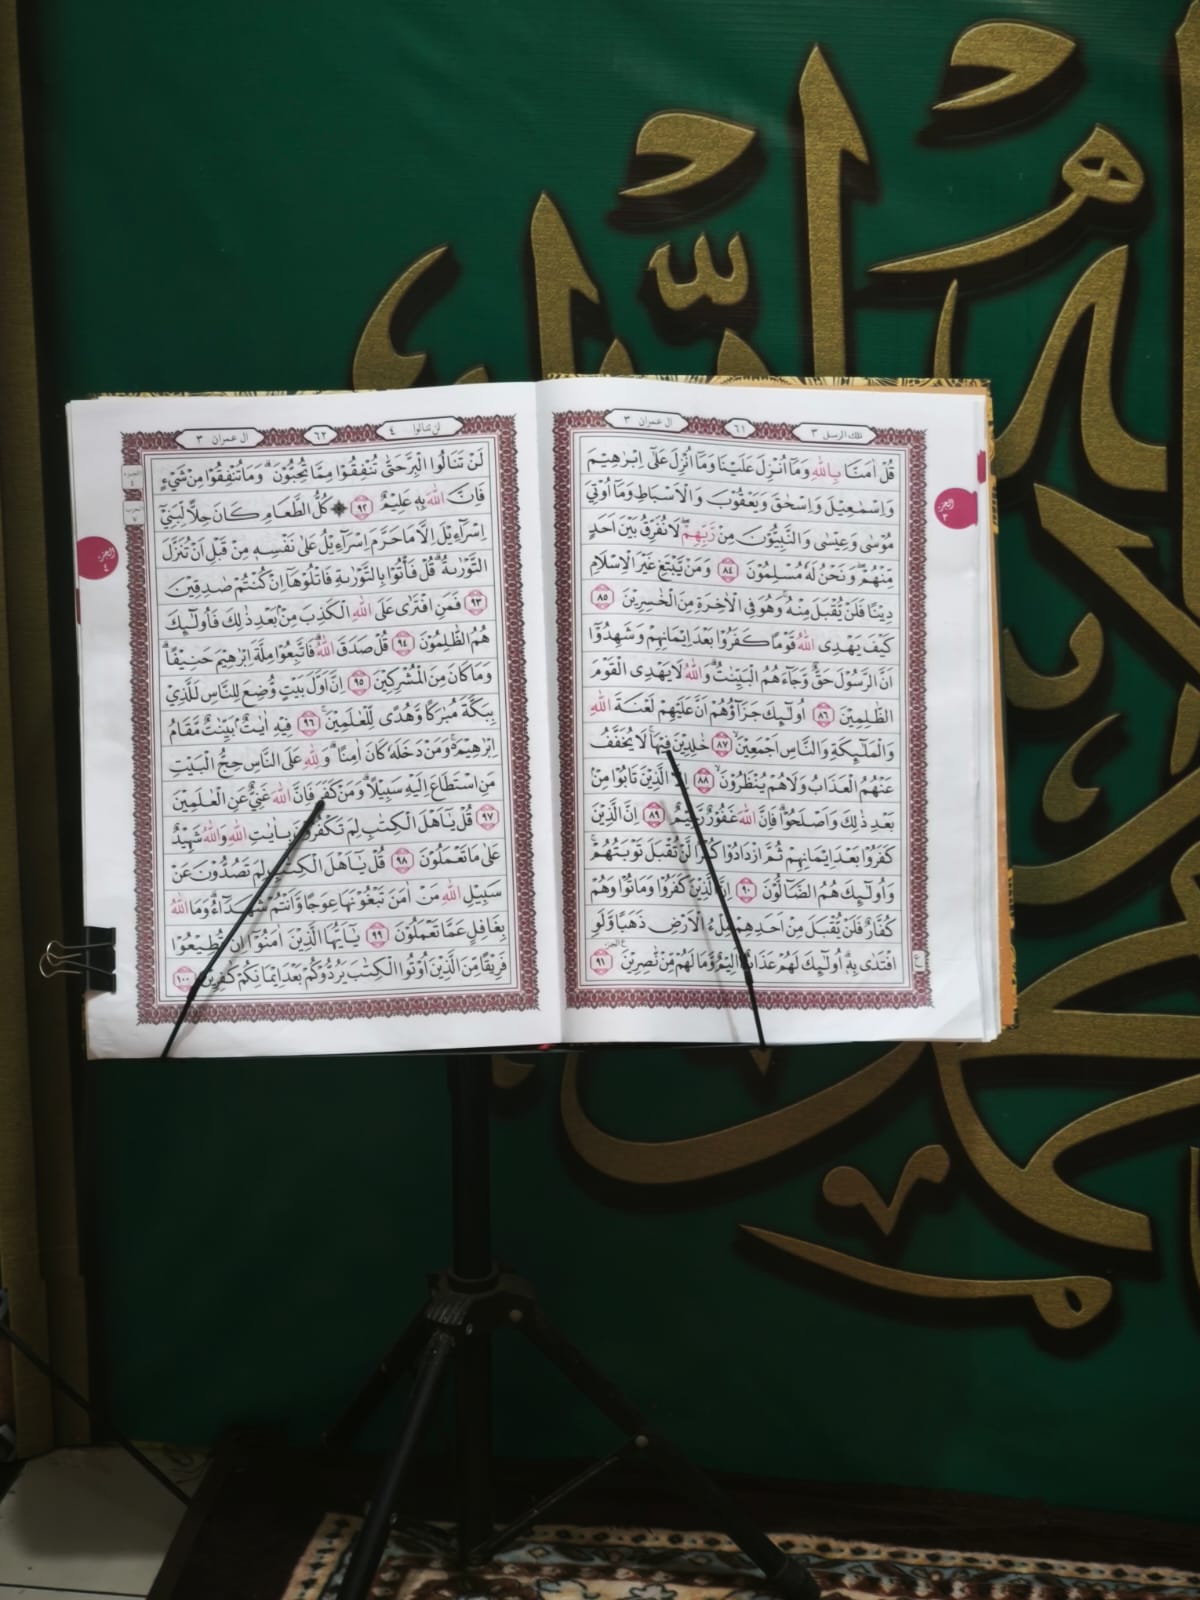 تلك الرسل ٣
٦١
اٰل عمران ٣
قُلْ اٰمَنَّا بِاللّٰهِ وَمَآ اُنْزِلَ عَلَيْنَا وَمَآ اُنْزِلَ عَلٰٓى اِبْرٰهِيْمَ
وَاِسْمٰعِيْلَ وَاِسْحٰقَ وَيَعْقُوْبَ وَالْاَسْبَاطِ وَمَآ اُوْتِيَ
مُوْسٰى وَعِيْسٰى وَالنَّبِيُّوْنَ مِنْ رَّبِّهِمْۖ لَا نُفَرِّقُ بَيْنَ اَحَدٍ
مِّنْهُمْۖ وَنَحْنُ لَهٗ مُسْلِمُوْنَ ٨٤ وَمَنْ يَّبْتَغِ غَيْرَ الْاِسْلَامِ
دِيْنًا فَلَنْ يُّقْبَلَ مِنْهُۚ وَهُوَ فِى الْاٰخِرَةِ مِنَ الْخٰسِرِيْنَ ٨٥
كَيْفَ يَهْدِى اللّٰهُ قَوْمًا كَفَرُوْا بَعْدَ اِيْمَانِهِمْ وَشَهِدُوْٓا
اَنَّ الرَّسُوْلَ حَقٌّ وَّجَاۤءَهُمُ الْبَيِّنٰتُۗ وَاللّٰهُ لَا يَهْدِى الْقَوْمَ
الظّٰلِمِيْنَ ٨٦ اُولٰۤىِٕكَ جَزَاۤؤُهُمْ اَنَّ عَلَيْهِمْ لَعْنَةَ اللّٰهِ
وَالْمَلٰۤىِٕكَةِ وَالنَّاسِ اَجْمَعِيْنَۙ ٨٧ خٰلِدِيْنَ فِيْهَاۚ لَا يُخَفَّفُ
عَنْهُمُ الْعَذَابُ وَلَا هُمْ يُنْظَرُوْنَۙ ٨٨ اِلَّا الَّذِيْنَ تَابُوْا مِنْۢ
بَعْدِ ذٰلِكَ وَاَصْلَحُوْاۗ فَاِنَّ اللّٰهَ غَفُوْرٌ رَّحِيْمٌ ٨٩ اِنَّ الَّذِيْنَ
كَفَرُوْا بَعْدَ اِيْمَانِهِمْ ثُمَّ ازْدَادُوْا كُفْرًا لَّنْ تُقْبَلَ تَوْبَتُهُمْۚ
وَاُولٰۤىِٕكَ هُمُ الضَّاۤلُّوْنَ ٩٠ اِنَّ الَّذِيْنَ كَفَرُوْا وَمَاتُوْا وَهُمْ
كُفَّارٌ فَلَنْ يُّقْبَلَ مِنْ اَحَدِهِمْ مِّلْءُ الْاَرْضِ ذَهَبًا وَّلَوِ
افْتَدٰى بِهٖۗ اُولٰۤىِٕكَ لَهُمْ عَذَابٌ اَلِيْمٌ وَّمَا لَهُمْ مِّنْ نّٰصِرِيْنَ ٩١
الجزء
٣
لن تنالوا ٤
٦٢
اٰل عمران ٣
لَنْ تَنَالُوا الْبِرَّ حَتّٰى تُنْفِقُوْا مِمَّا تُحِبُّوْنَۗ وَمَا تُنْفِقُوْا مِنْ شَيْءٍ
فَاِنَّ اللّٰهَ بِهٖ عَلِيْمٌ ٩٢ كُلُّ الطَّعَامِ كَانَ حِلًّا لِّبَنِيْٓ
اِسْرَاۤءِيْلَ اِلَّا مَا حَرَّمَ اِسْرَاۤءِيْلُ عَلٰى نَفْسِهٖ مِنْ قَبْلِ اَنْ تُنَزَّلَ
التَّوْرٰىةُۗ قُلْ فَأْتُوْا بِالتَّوْرٰىةِ فَاتْلُوْهَآ اِنْ كُنْتُمْ صٰدِقِيْنَ
٩٣ فَمَنِ افْتَرٰى عَلَى اللّٰهِ الْكَذِبَ مِنْۢ بَعْدِ ذٰلِكَ فَاُولٰۤىِٕكَ
هُمُ الظّٰلِمُوْنَ ٩٤ قُلْ صَدَقَ اللّٰهُۗ فَاتَّبِعُوْا مِلَّةَ اِبْرٰهِيْمَ حَنِيْفًاۗ
وَمَا كَانَ مِنَ الْمُشْرِكِيْنَ ٩٥ اِنَّ اَوَّلَ بَيْتٍ وُّضِعَ لِلنَّاسِ لَلَّذِيْ
بِبَكَّةَ مُبٰرَكًا وَّهُدًى لِّلْعٰلَمِيْنَۚ ٩٦ فِيْهِ اٰيٰتٌۢ بَيِّنٰتٌ مَّقَامُ
اِبْرٰهِيْمَ ەۚ وَمَنْ دَخَلَهٗ كَانَ اٰمِنًاۗ وَلِلّٰهِ عَلَى النَّاسِ حِجُّ الْبَيْتِ
مَنِ اسْتَطَاعَ اِلَيْهِ سَبِيْلًاۗ وَمَنْ كَفَرَ فَاِنَّ اللّٰهَ غَنِيٌّ عَنِ الْعٰلَمِيْنَ
٩٧ قُلْ يٰٓاَهْلَ الْكِتٰبِ لِمَ تَكْفُرُوْنَ بِاٰيٰتِ اللّٰهِ وَاللّٰهُ شَهِيْدٌ
عَلٰى مَا تَعْمَلُوْنَ ٩٨ قُلْ يٰٓاَهْلَ الْكِتٰبِ لِمَ تَصُدُّوْنَ عَنْ
سَبِيْلِ اللّٰهِ مَنْ اٰمَنَ تَبْغُوْنَهَا عِوَجًا وَّاَنْتُمْ شُهَدَاۤءُۗ وَمَا اللّٰهُ
بِغَافِلٍ عَمَّا تَعْمَلُوْنَ ٩٩ يٰٓاَيُّهَا الَّذِيْنَ اٰمَنُوْٓا اِنْ تُطِيْعُوْا
فَرِيْقًا مِّنَ الَّذِيْنَ اُوْتُوا الْكِتٰبَ يَرُدُّوْكُمْ بَعْدَ اِيْمَانِكُمْ كٰفِرِيْنَ ١٠٠
الجزء
٤